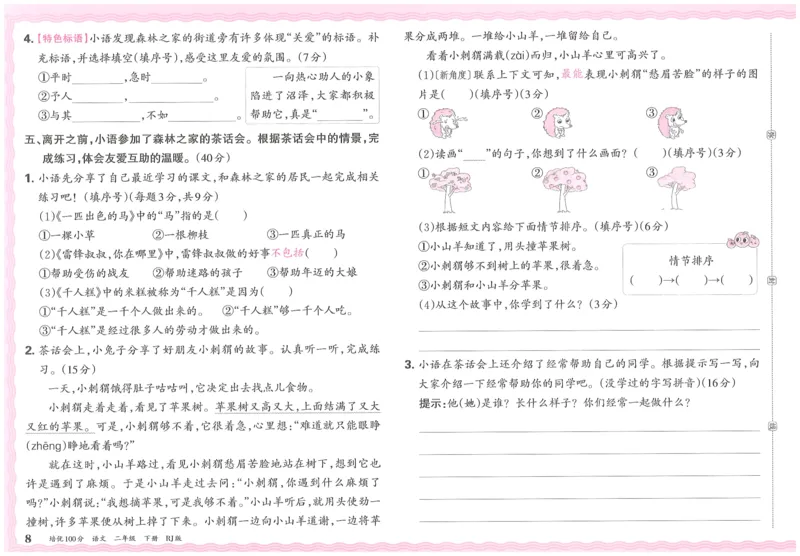 4.【特色标语】小语发现森林之家的街道旁有许多体现“关爱”的标语。补
充标语,并选择填空(填序号),感受这里友爱的氛围。(7分)
①平时________,急时________。
②予人________,________。
③与其________,不如________。
一向热心助人的小象
陷进了沼泽,大家都积极
帮助它,真是“________”。
五、离开之前,小语参加了森林之家的茶话会。根据茶话会中的情景,完
成练习,体会友爱互助的温暖。(40分)
1. 小语先分享了自己最近学习的课文,和森林之家的居民一起完成相关
练习吧!(填序号)(每题3分,共9分)
(1)《一匹出色的马》中的“马”指的是(　　)
①一棵小草　②一根柳枝　③一匹真正的马
(2)《雷锋叔叔,你在哪里》中,雷锋叔叔做的好事不包括(　　)
①帮助受伤的战友　②帮助迷路的孩子　③帮助年迈的大娘
(3)《千人糕》中的米糕被称为“千人糕”是因为(　　)
①“千人糕”是一千个人做出来的。　②“千人糕”够一千个人吃。
③“千人糕”是经过很多人的劳动才做出来的。
2. 茶话会上,小兔子分享了好朋友小刺猬的故事。认真听一听,完成练
习。(15分)
一天,小刺猬饿得肚子咕咕叫,它决定出去找点儿食物。
小刺猬走着走着,看见了苹果树。苹果树又高又大,上面结满了又大
又红的苹果。可是,小刺猬够不着,它很着急,心里想:“难道就只能眼睁
(zhēng)睁地看着吗?”
就在这时,小山羊路过,看见小刺猬愁眉苦脸地站在树下,想到它也
许是遇到了麻烦。于是小山羊走过去问:“小刺猬,你遇到什么麻烦了
吗?”小刺猬说:“我想摘苹果,可是我够不着。”小山羊听后,就用头使劲一
撞树,许多苹果便从树上掉了下来。小刺猬一边向小山羊道谢,一边将苹
8　培优100分　语文　二年级　下册　RJ版
果分成两堆。一堆给小山羊,一堆留给自己。
看着小刺猬满载(zài)而归,小山羊心里可高兴了。
(1)[新角度]联系上下文可知,最能表现小刺猬“愁眉苦脸”的样子的图
片是(　　)(填序号)(3分)
①　②　③
(2)读画“____”的句子,你想到了什么画面?(　　)(填序号)(3分)
①　②　③
(3)根据短文内容给下面情节排序。(填序号)(6分)
①小山羊知道了,用头撞苹果树。
②小刺猬够不到树上的苹果,很着急。
③小刺猬和小山羊分苹果。
情节排序
(　　)→(　　)→(　　)
(4)从这个故事中,你学到了什么?(3分)
3. 小语在茶话会上还介绍了经常帮助自己的同学。根据提示写一写,向
大家介绍一下经常帮助你的同学吧。(没学过的字写拼音)(16分)
提示:他(她)是谁?长什么样子?你们经常一起做什么?